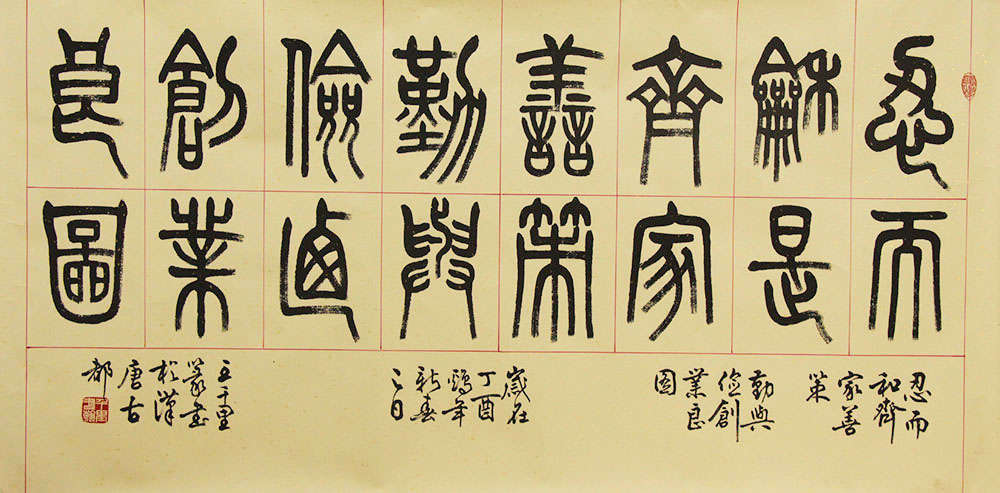 忍而
龢是
齊家
善策
勤與
儉迺
創業
良圖
忍而
和齊
家善
策
勤與
儉創
業良
圖
歲在
丁酉
鷄年
新春
二日
王千里
篆書
於漢
唐古
都